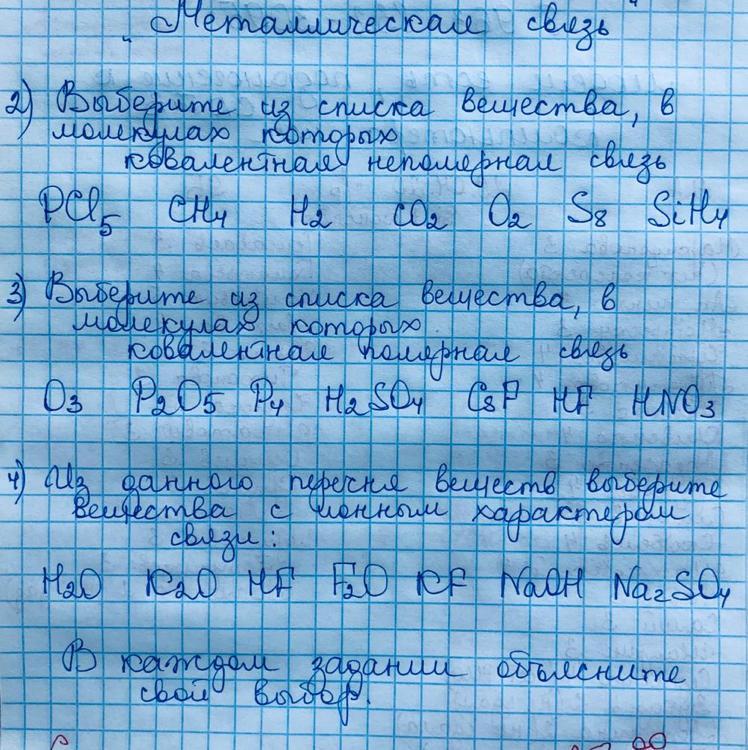 Металлическая связь
2) Выберите из списка вещества, в
молекулах которых
ковалентная неполярная связь
PCl5 CH4 H2 CO2 O2 S8 SiH4
3) Выберите из списка вещества, в
молекулах которых
ковалентная полярная связь
O3 P2O5 P4 H2SO4 CsF HF HNO3
4) Из данного перечня веществ выберите
вещества с ионным характером
связи:
H2O K2O HF F2O KF NaOH Na2SO4
В каждом задании объясните
свой выбор.